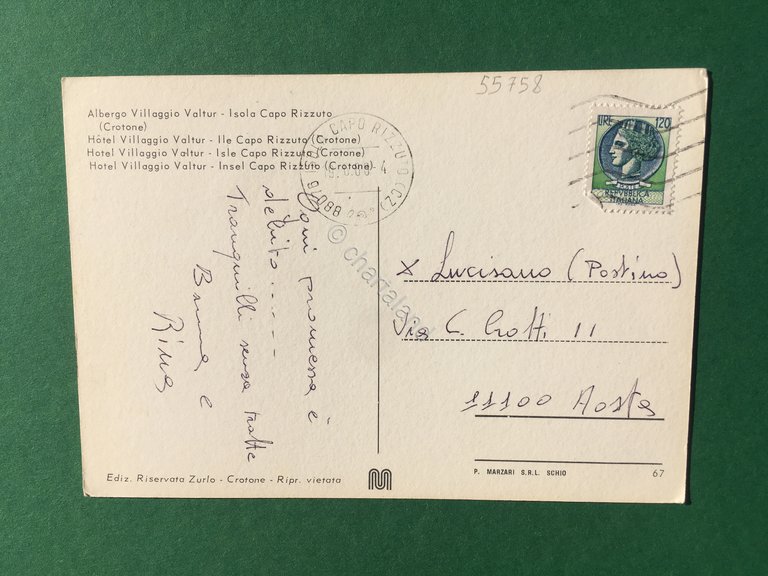 55758
Albergo Villaggio Valtur - Isola Capo Rizzuto
(Crotone)
Hôtel Villaggio Valtur - Ile Capo Rizzuto (Crotone)
Hotel Villaggio Valtur - Isle Capo Rizzuto (Crotone)
Hotel Villaggio Valtur - Insel Capo Rizzuto (Crotone)
CAPO RIZZUTO (CZ)
88076
LIRE 120
REPVBBLICA
ITALIANA
Ogni promessa è
debito......
Tranquilli senza tratte
Bruna e
Rina
© chartaland
x Lucisano (Postino)
Via C. Crotti 11
11100 Aosta
Ediz. Riservata Zurlo - Crotone - Ripr. vietata
P. MARZARI S.R.L. SCHIO
67